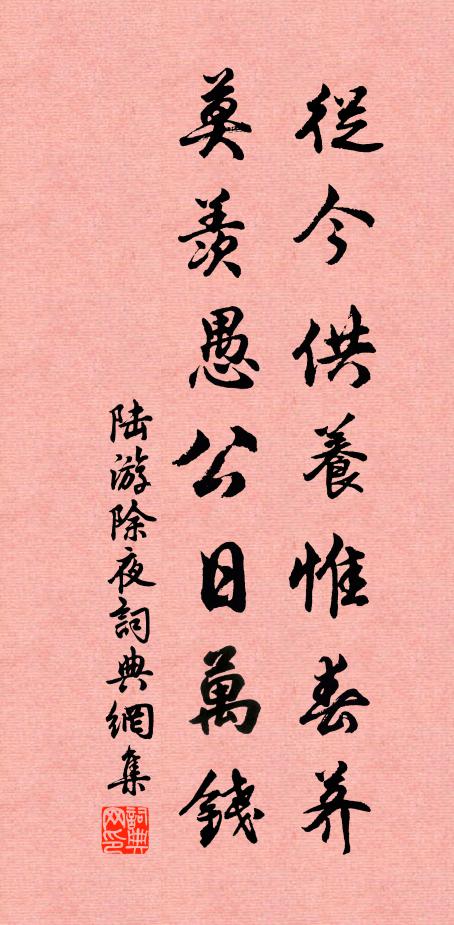 從今供養惟春荠
莫羨愚公日萬錢
陆游除夜詞典網集
詞典
网印